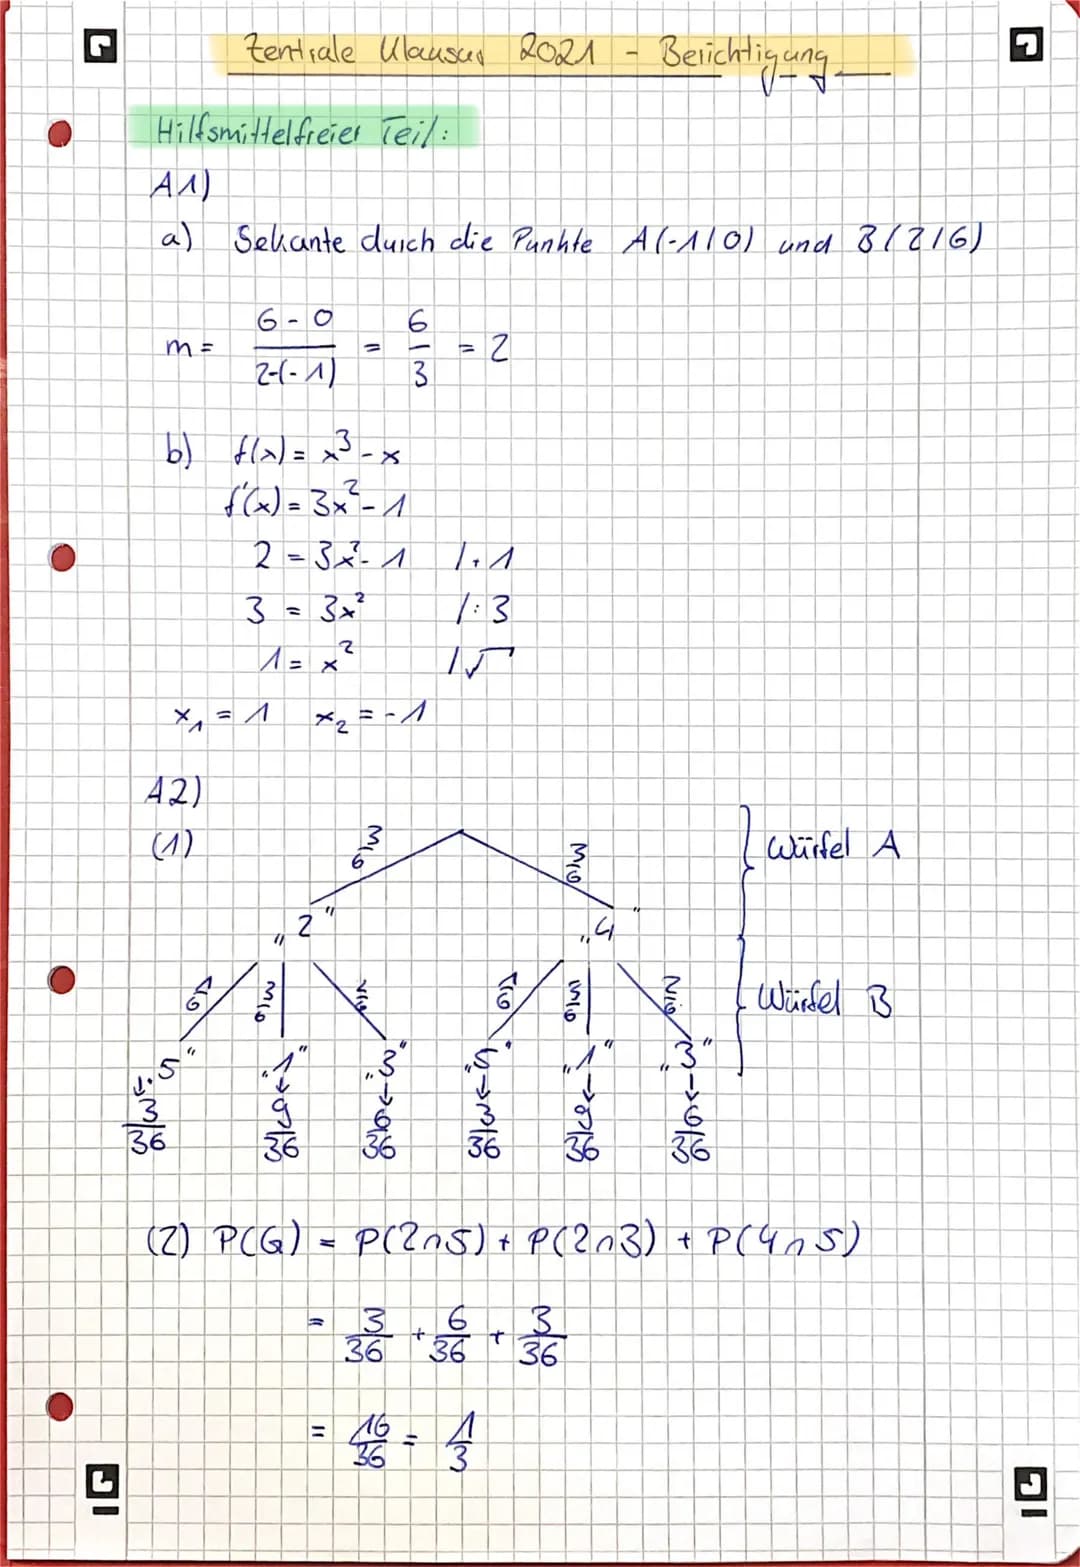 Zentrale Klausur 2021 - Berichtigung
Hilfsmittelfreier Teil:
A1)
a) Sekante durch die Punkte A(-1/0) und B(2/6)
m = \frac{6-0}{2-(-1)} = \frac{6}{3} = 2
b) f(x) = x³ - x
f'(x) = 3x² - 1
2 = 3x² - 1 /+1
3 = 3x² /:3
1 = x² /√
x₁ = 1 x₂ = -1
A2)
(1) 3/6 3/6 Würfel A
„2" „4"
1/6 3/6 2/6 1/6 3/6 2/6 Würfel B
„5" „1" „3" „5" „1" „3"
3/36 9/36 6/36 3/36 9/36 6/36
(2) P(G) = P(2∩5) + P(2∩3) + P(4∩5)
= 3/36 + 6/36 + 3/36
= 16/36 = 1/3